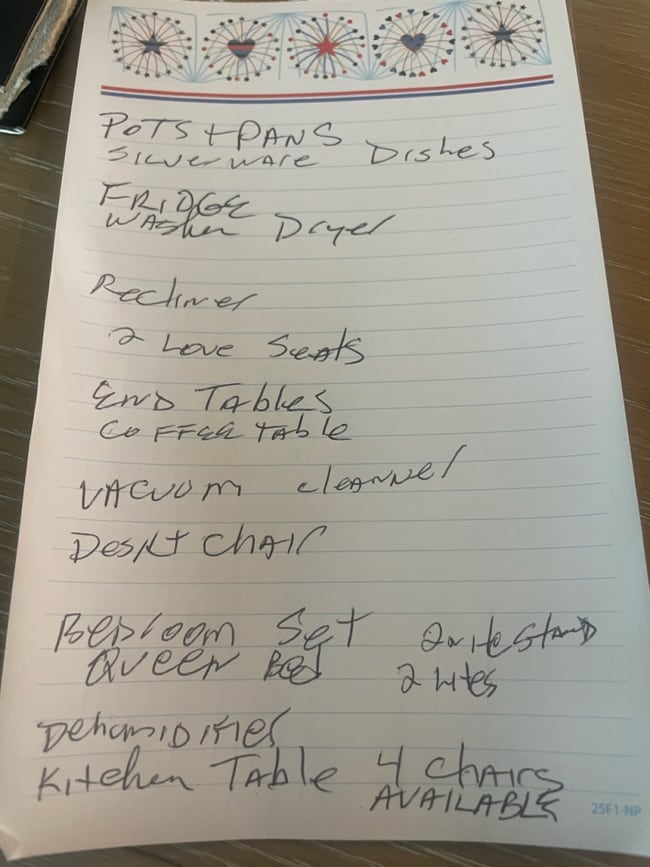 POTS + PANS
SILVERWARE Dishes
FRIDGE
WASher Dryer
Recliner
2 Love Seats
END TABles
COFFEE TABle
VACUUM cleANNer
Desk + CHAIR
BeDroom Set 2 niteStanD
QUEEN BeD 2 Lites
DehumiDifier
Kitchen TABle 4 CHAIrs
AVAILABLE
25F1-NP